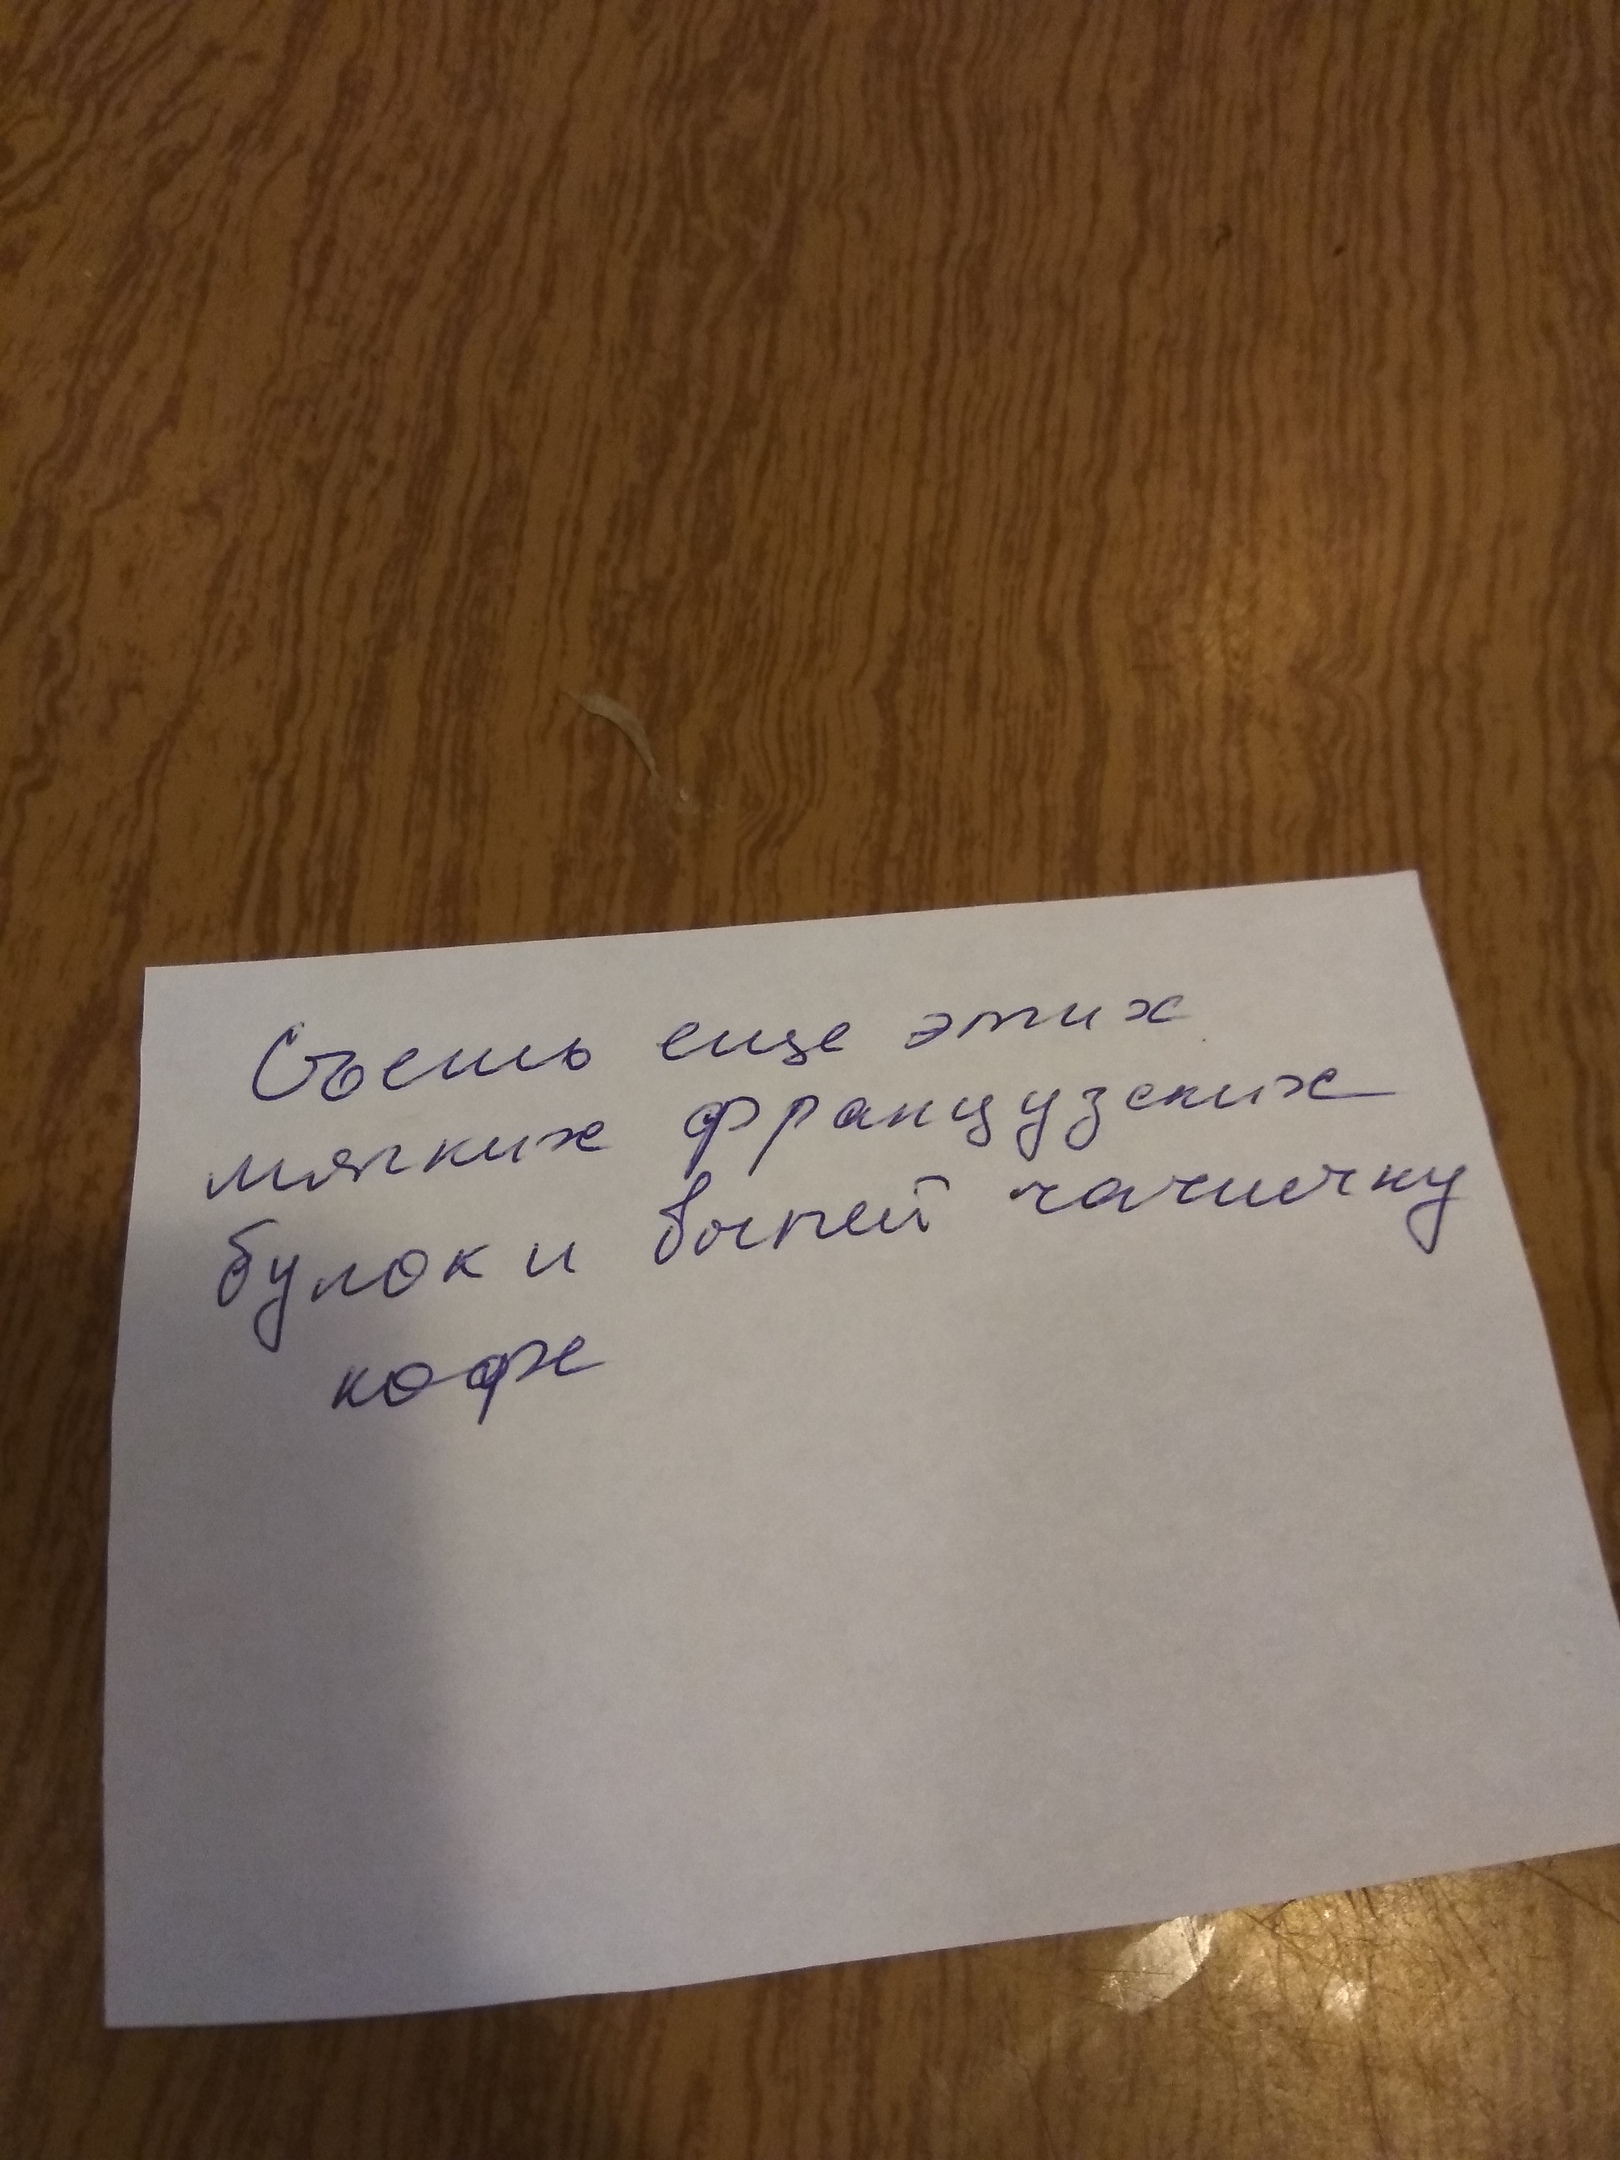 Съешь еще этих
мягких французских
булок и выпей чашечку
кофе